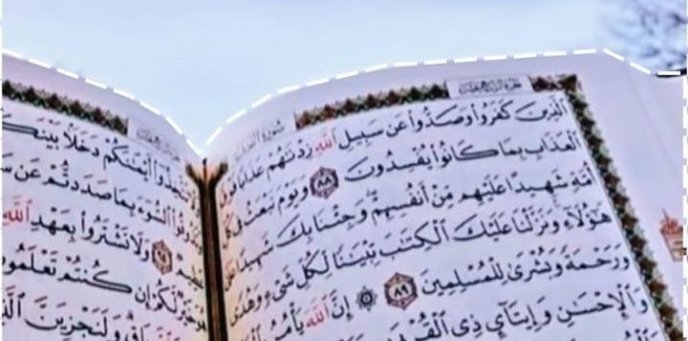 سُورَةُ النَّحْلِ
ٱلَّذِينَ كَفَرُوا۟ وَصَدُّوا۟ عَن سَبِيلِ ٱللَّهِ زِدْنَٰهُمْ عَذَابًا فَوْقَ
ٱلْعَذَابِ بِمَا كَانُوا۟ يُفْسِدُونَ ٨٨ وَيَوْمَ نَبْعَثُ فِى كُلِّ
أُمَّةٍ شَهِيدًا عَلَيْهِم مِّنْ أَنفُسِهِمْ وَجِئْنَا بِكَ شَهِيدًا عَلَىٰ
هَٰٓؤُلَآءِ وَنَزَّلْنَا عَلَيْكَ ٱلْكِتَٰبَ تِبْيَٰنًا لِّكُلِّ شَىْءٍ وَهُدًى
وَرَحْمَةً وَبُشْرَىٰ لِلْمُسْلِمِينَ ٨٩ ۞ إِنَّ ٱللَّهَ يَأْمُرُ
وَٱلْإِحْسَٰنِ وَإِيتَآئِ ذِى
تَتَّخِذُوٓا۟ أَيْمَٰنَكُمْ دَخَلًۢا
ٱلسُّوٓءَ بِمَا صَدَدتُّمْ عَن
وَلَا تَشْتَرُوا۟ بِعَهْدِ ٱللَّهِ
خَيْرٌ لَّكُمْ إِن كُنتُمْ تَعْلَمُونَ
بَاقٍ وَلَنَجْزِيَنَّ